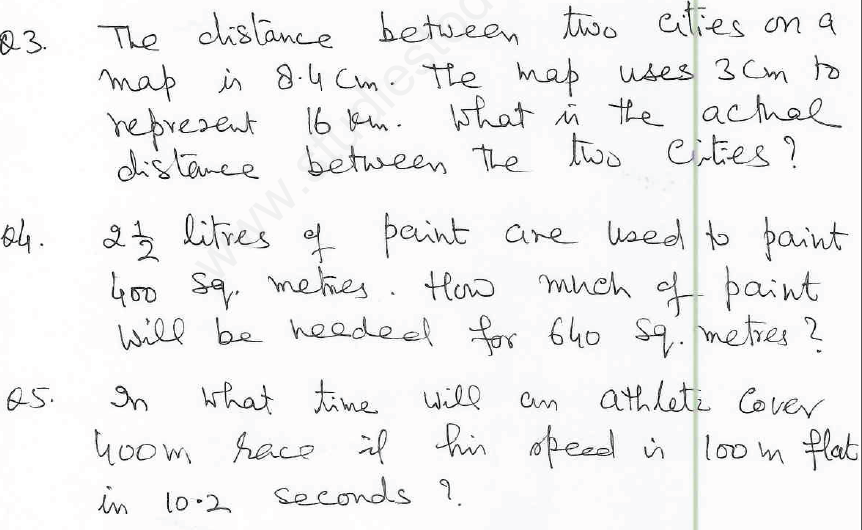 Q3. The distance between two cities on a
map is 8.4 cm. The map uses 3 cm to
represent 16 km. What is the actual
distance between the two cities?
Q4. 2 1/2 litres of paint are used to paint
400 sq. metres. How much of paint
will be needed for 640 sq. metres?
Q5. In what time will an athlete cover
400m race if his speed is 100 m flat
in 10.2 seconds?